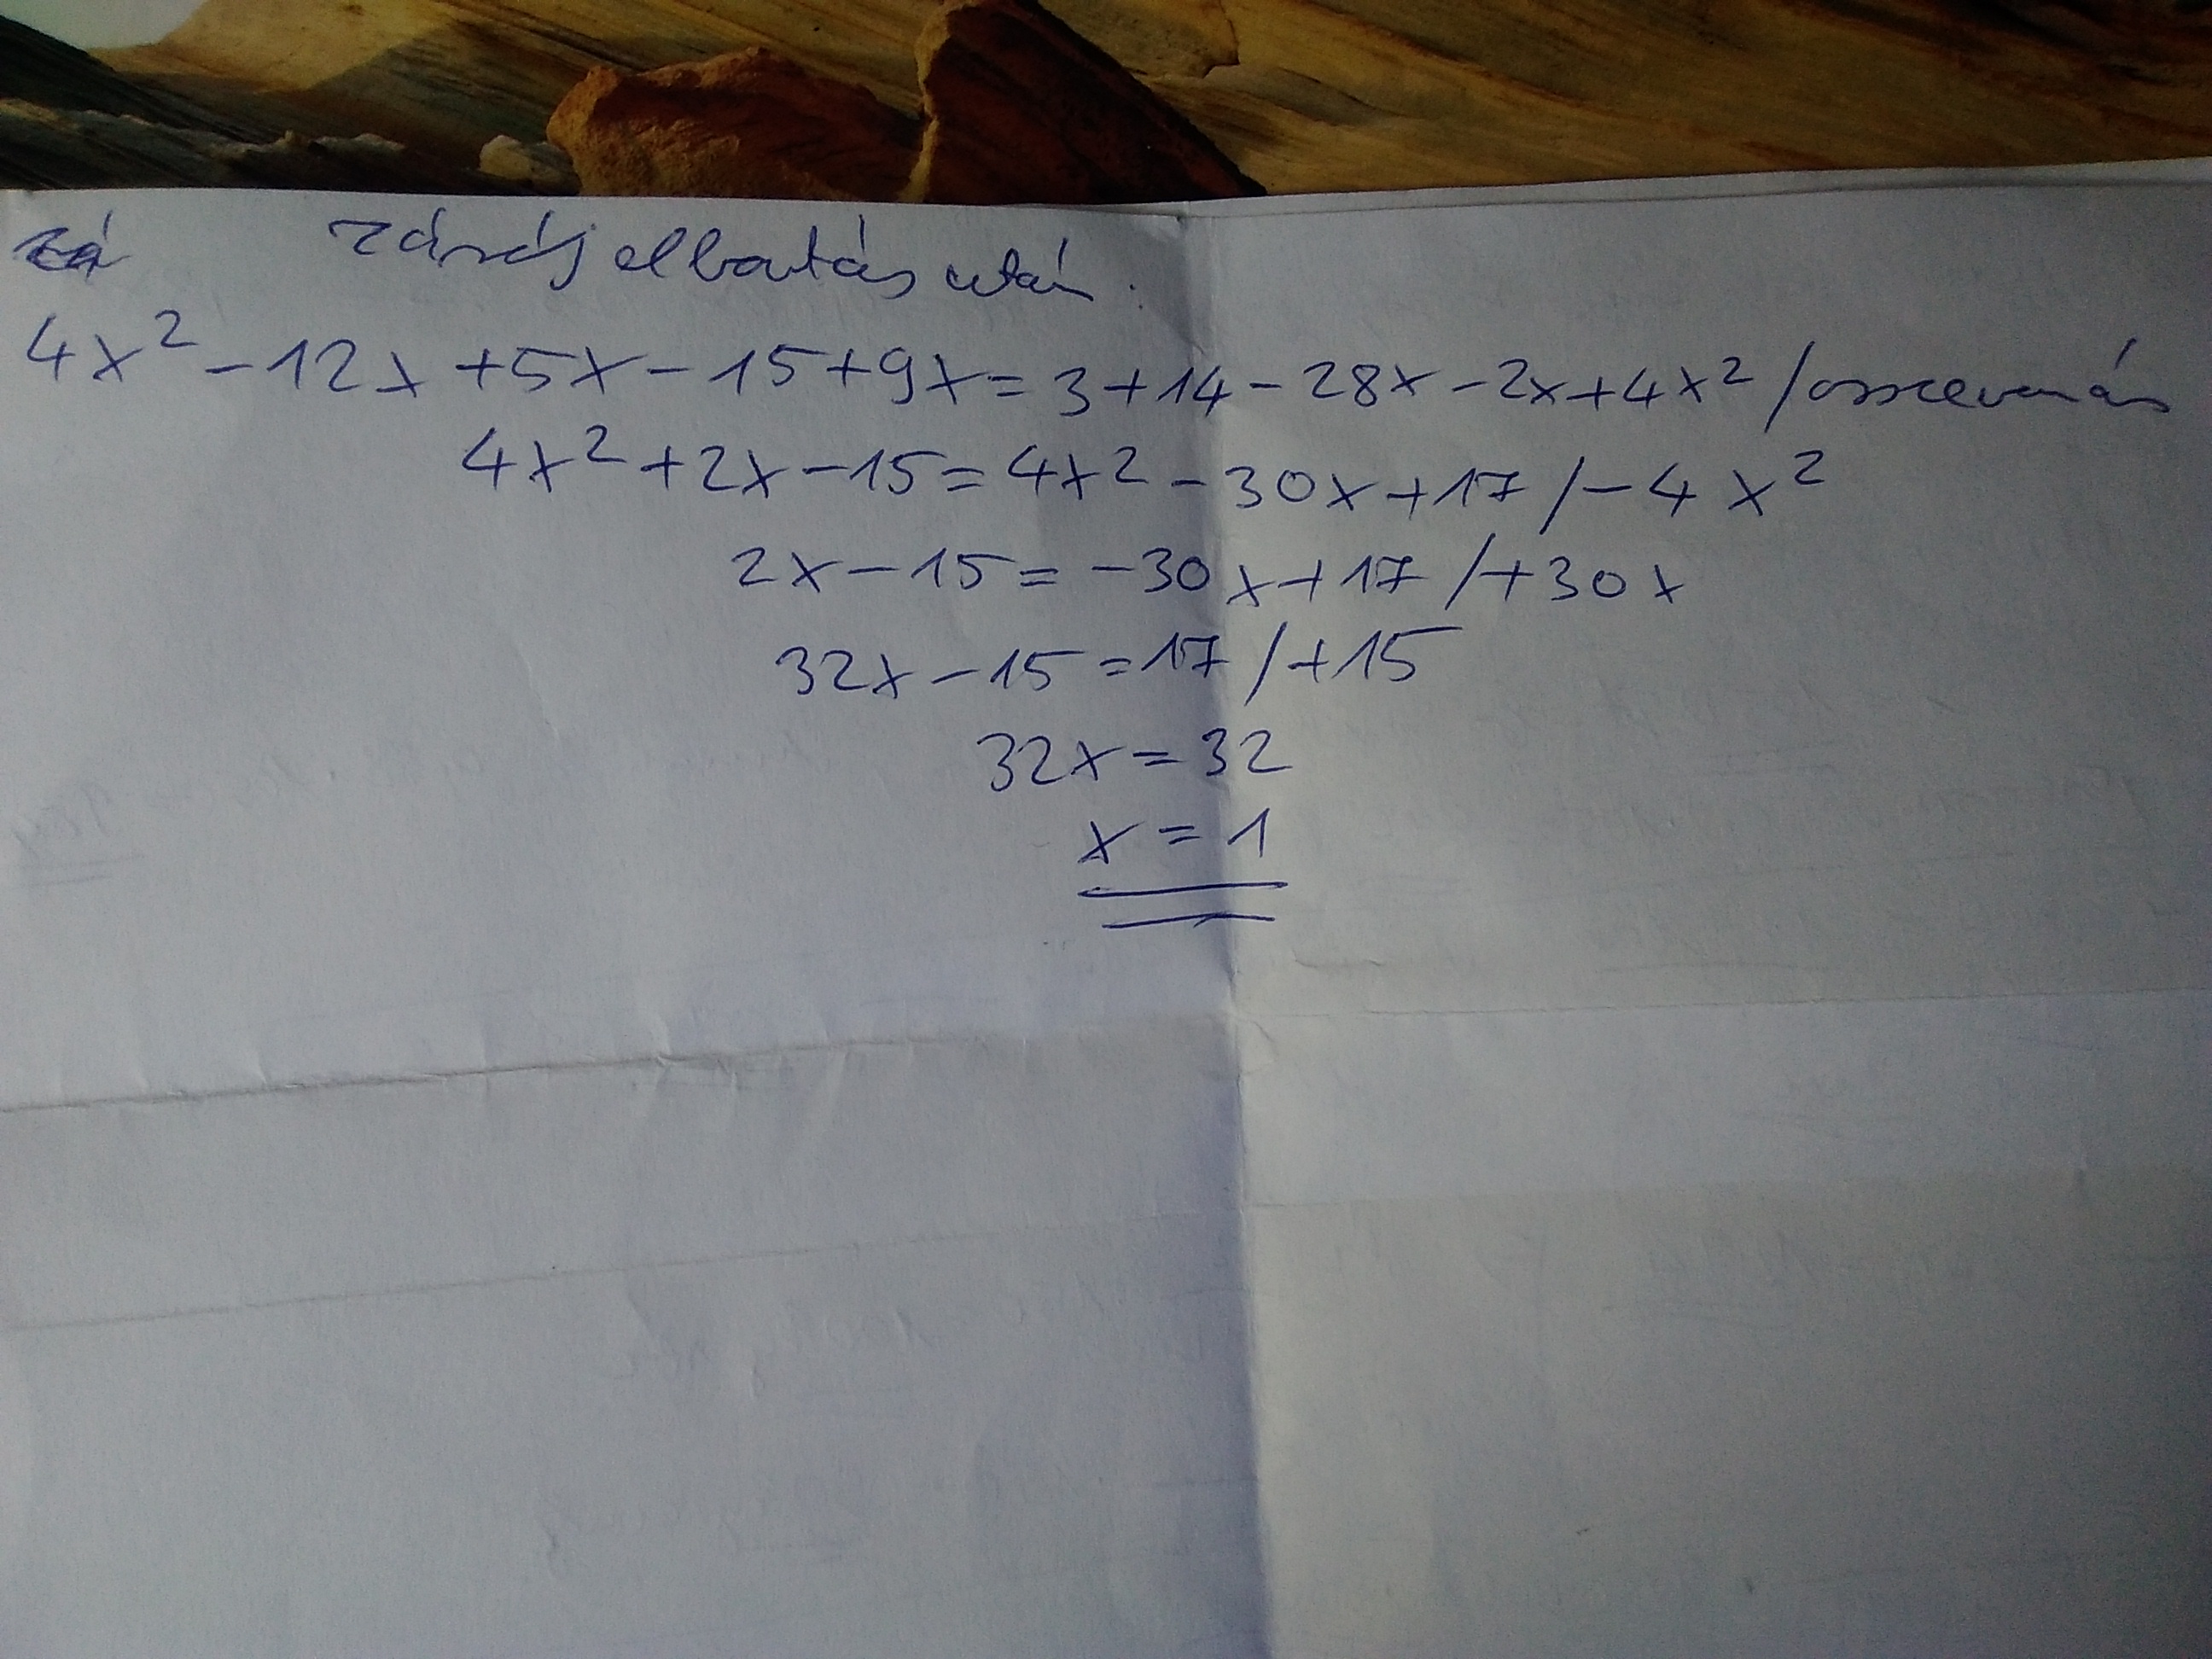 zárójelbontás után.
4x² - 12x + 5x - 15 + 9x = 3 + 14 - 28x - 2x + 4x² / összevonás
4x² + 2x - 15 = 4x² - 30x + 17 / - 4x²
2x - 15 = -30x + 17 / + 30x
32x - 15 = 17 / + 15
32x = 32
x = 1